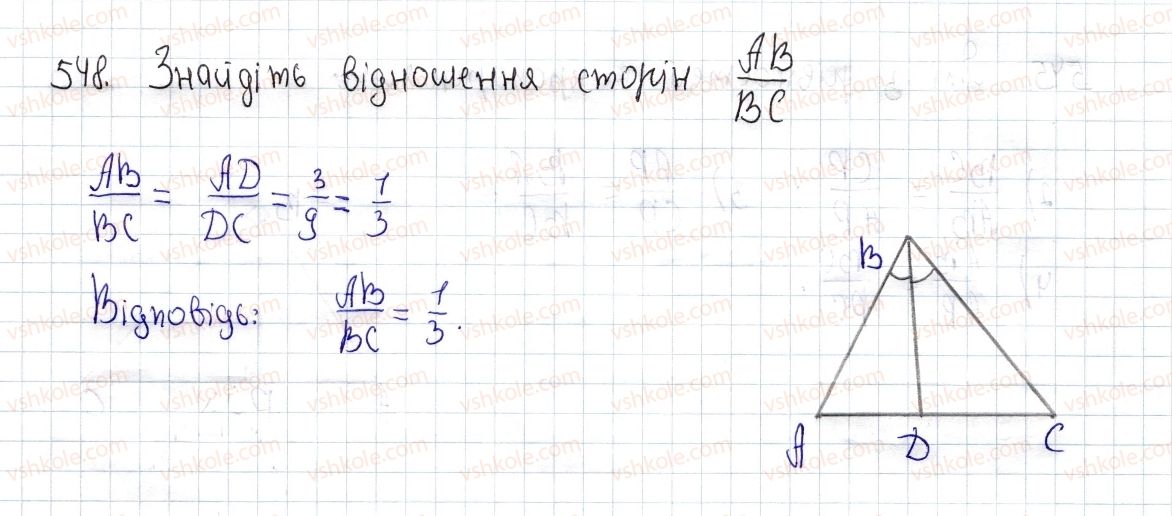 548. Знайдіть відношення сторін AB/BC
AB/BC = AD/DC = 3/9 = 1/3
Відповідь: AB/BC = 1/3.
B
A D C
vshkole.com